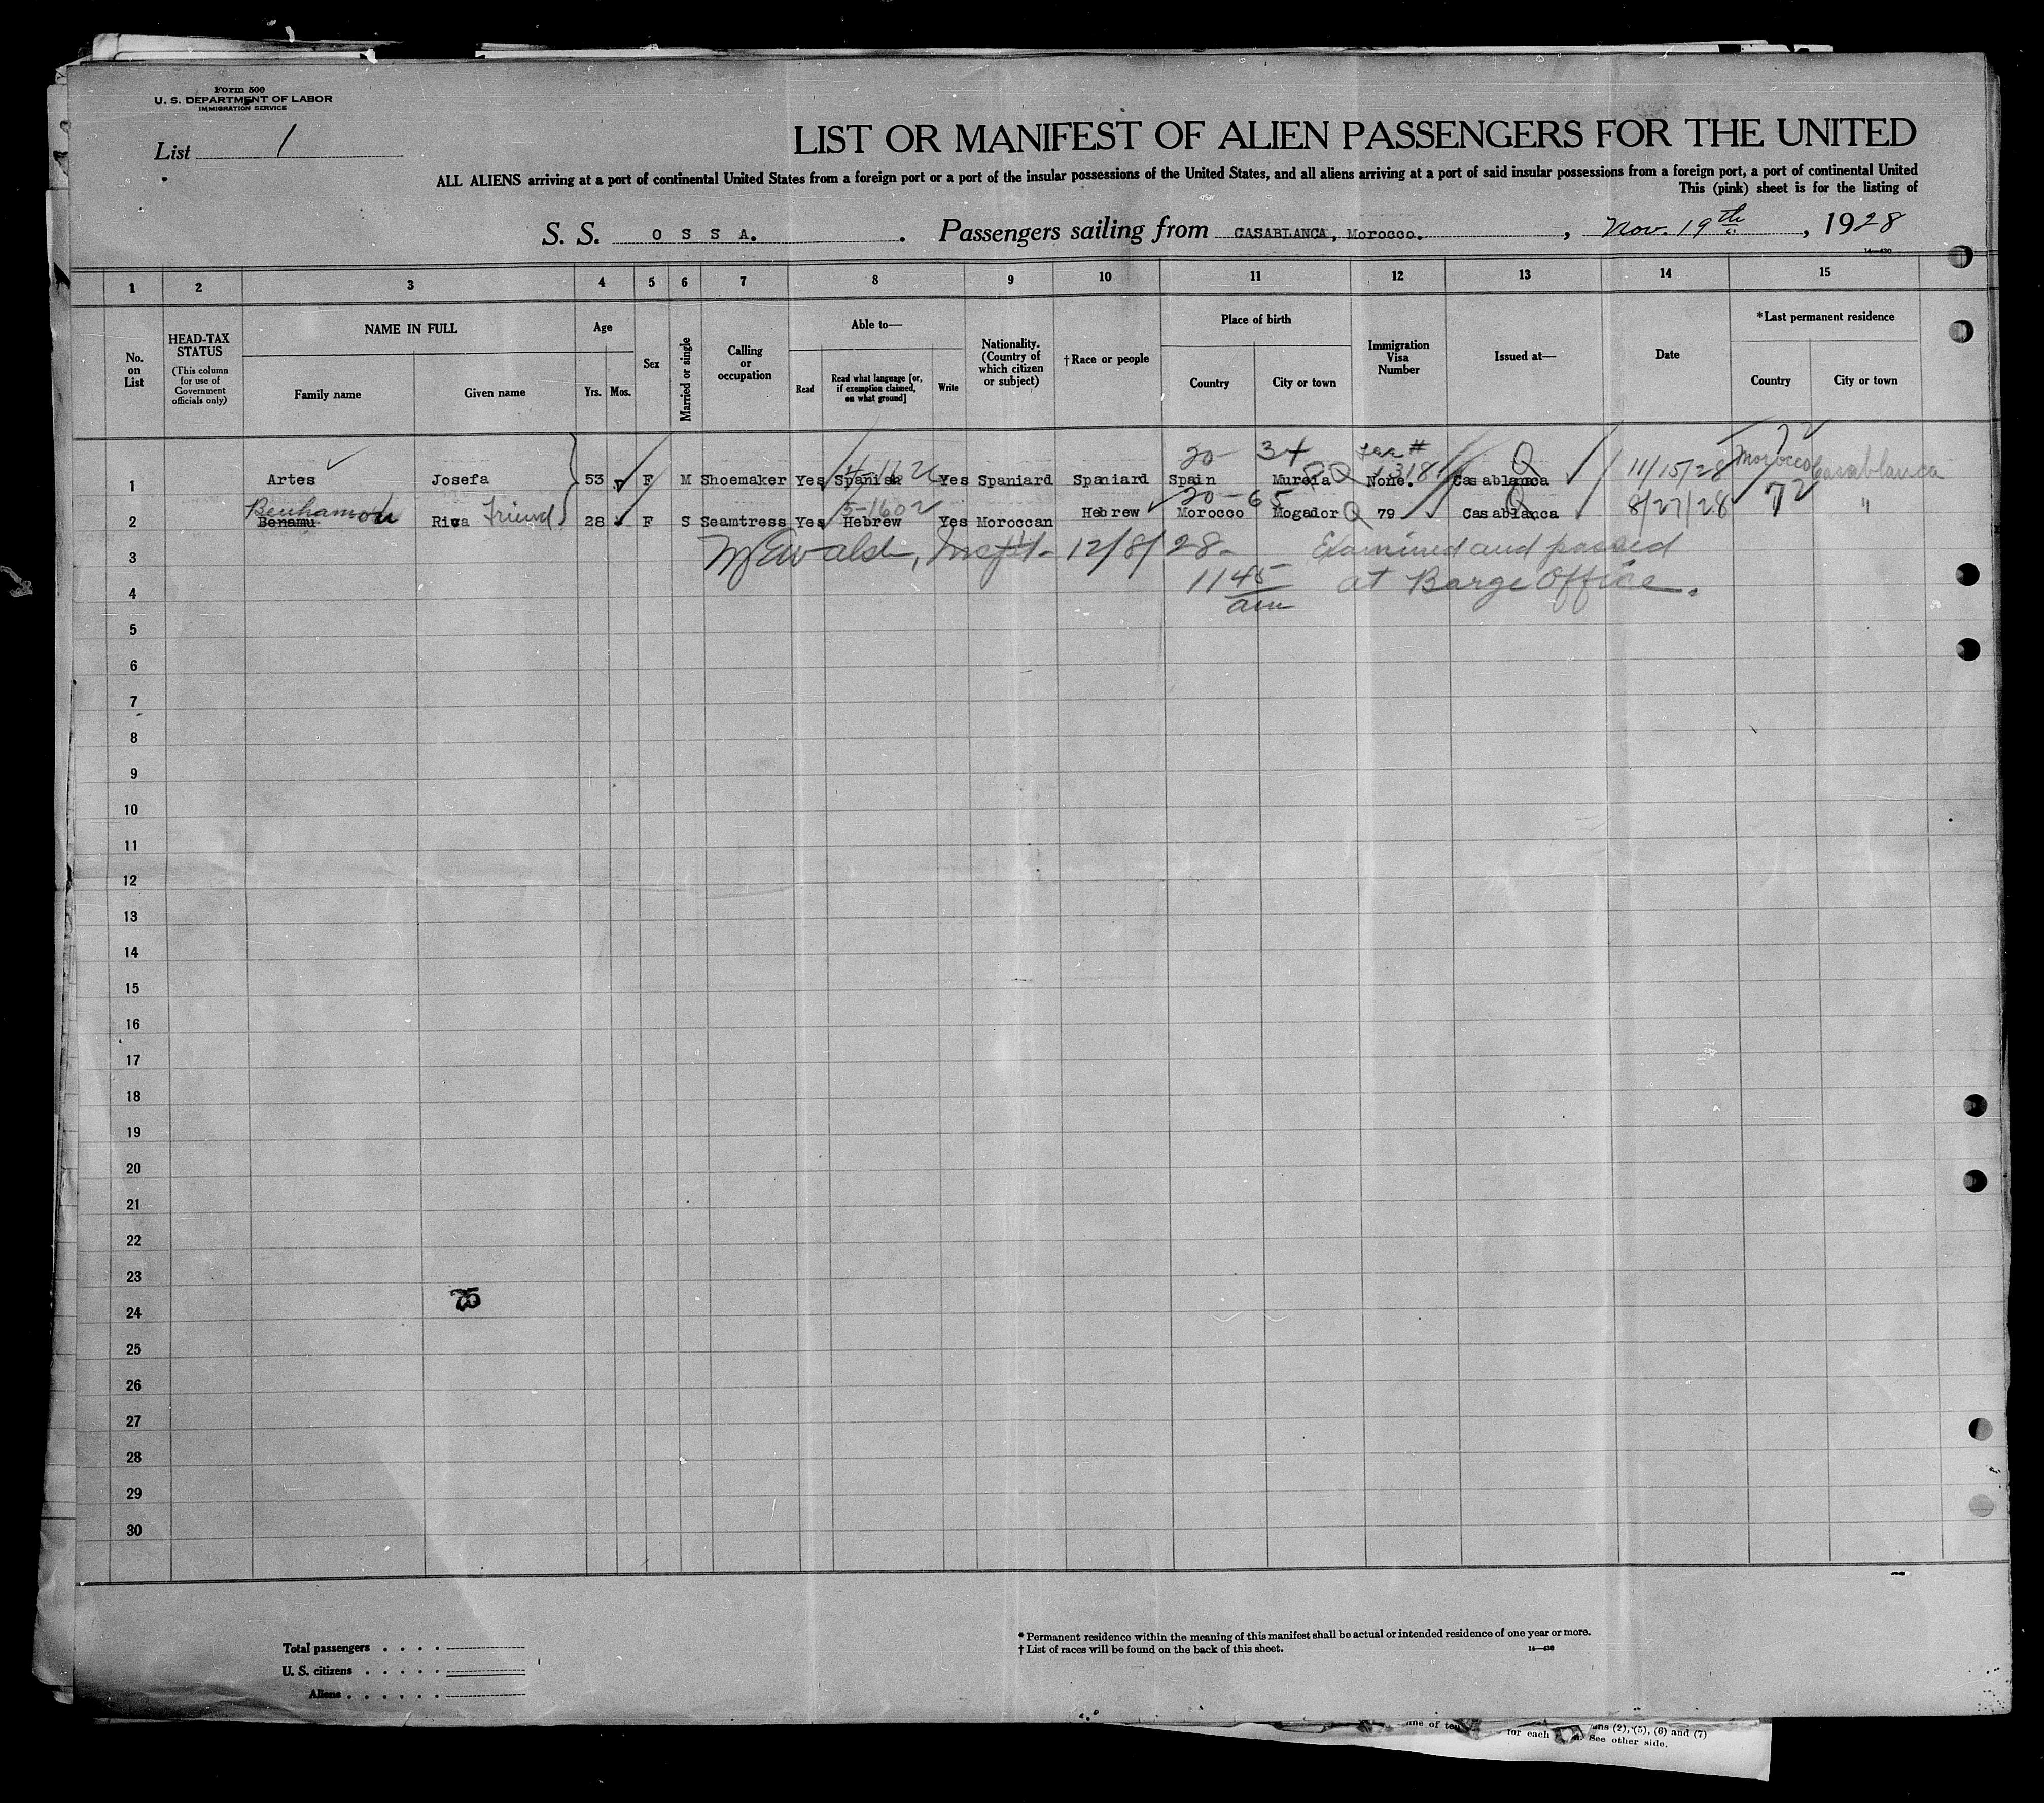 Form 500
U. S. DEPARTMENT OF LABOR
IMMIGRATION SERVICE
List 1
LIST OR MANIFEST OF ALIEN PASSENGERS FOR THE UNITED
ALL ALIENS arriving at a port of continental United States from a foreign port or a port of the insular possessions of the United States, and all aliens arriving at a port of said insular possessions from a foreign port, a port of continental United
This (pink) sheet is for the listing of
S. S. O S S A. Passengers sailing from CASABLANCA, Morocco. , Nov. 19th , 1928
14—430
1 2 3 4 5 6 7 8 9 10 11 12 13 14 15
No. on List
HEAD-TAX STATUS (This column for use of Government officials only)
NAME IN FULL
Family name Given name
Age
Yrs. Mos.
Sex
Married or single
Calling or occupation
Able to—
Read Read what language [or, if exemption claimed, on what ground] Write
Nationality. (Country of which citizen or subject)
†Race or people
Place of birth
Country City or town
Immigration Visa Number
Issued at—
Date
*Last permanent residence
Country City or town
20- 34 #
4-162 72
1 Artes Josefa 53 F M Shoemaker Yes Spanish Yes Spaniard Spaniard Spain Murcia Q None. 1318 Q Casablanca 11/15/28 Morocco Casablanca
Benhamou 5-1602 20-65
2 Benamu Rica Friend 28 F S Seamtress Yes Hebrew Yes Moroccan Hebrew Morocco Mogador Q 79 Q Casablanca 8/27/28 72 "
3 Insp't- 12/8/28- Examined and passed
4 1145 am at Barge Office.
5
6
7
8
9
10
11
12
13
14
15
16
17
18
19
20
21
22
23
75
24
25
26
27
28
29
30
Total passengers . . . .
U. S. citizens . . . . .
Aliens . . . . . .
* Permanent residence within the meaning of this manifest shall be actual or intended residence of one year or more.
† List of races will be found on the back of this sheet. 14—430
for each
(2), (5), (6) and (7)
See other side.